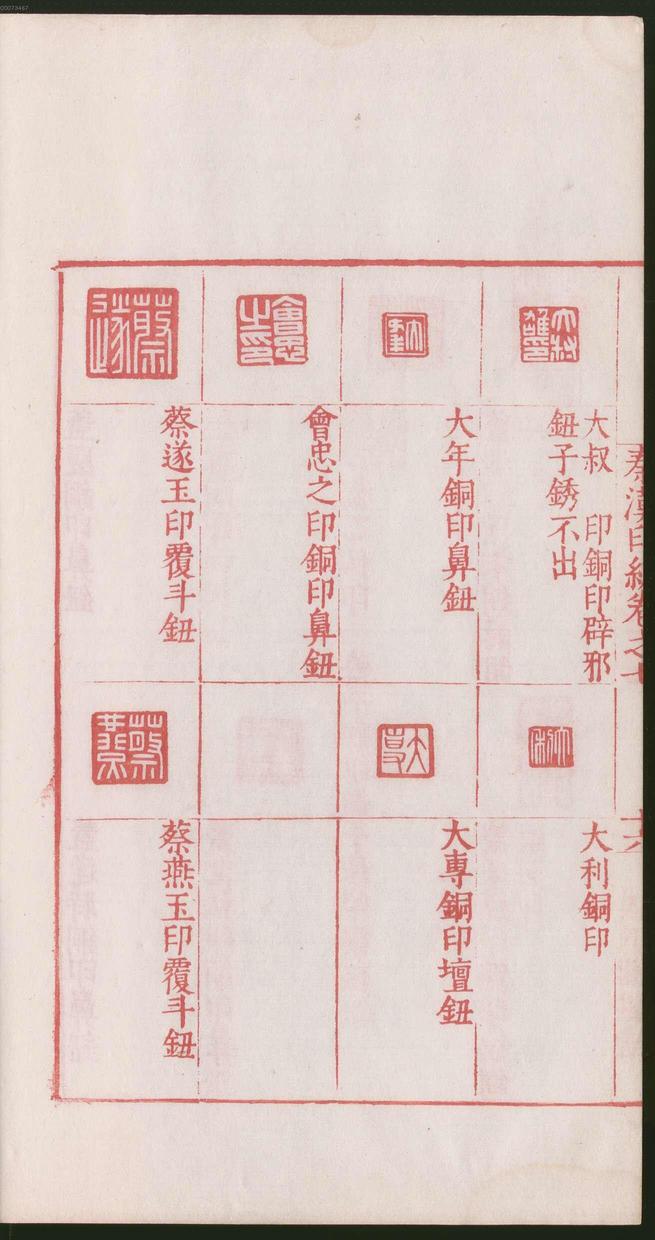 00073467
秦漢印統卷之七
十六
大叔　印銅印辟邪
鈕子銹不出
大利銅印
大年銅印鼻鈕
大專銅印壇鈕
會忠之印銅印鼻鈕
蔡遂玉印覆斗鈕
蔡燕玉印覆斗鈕